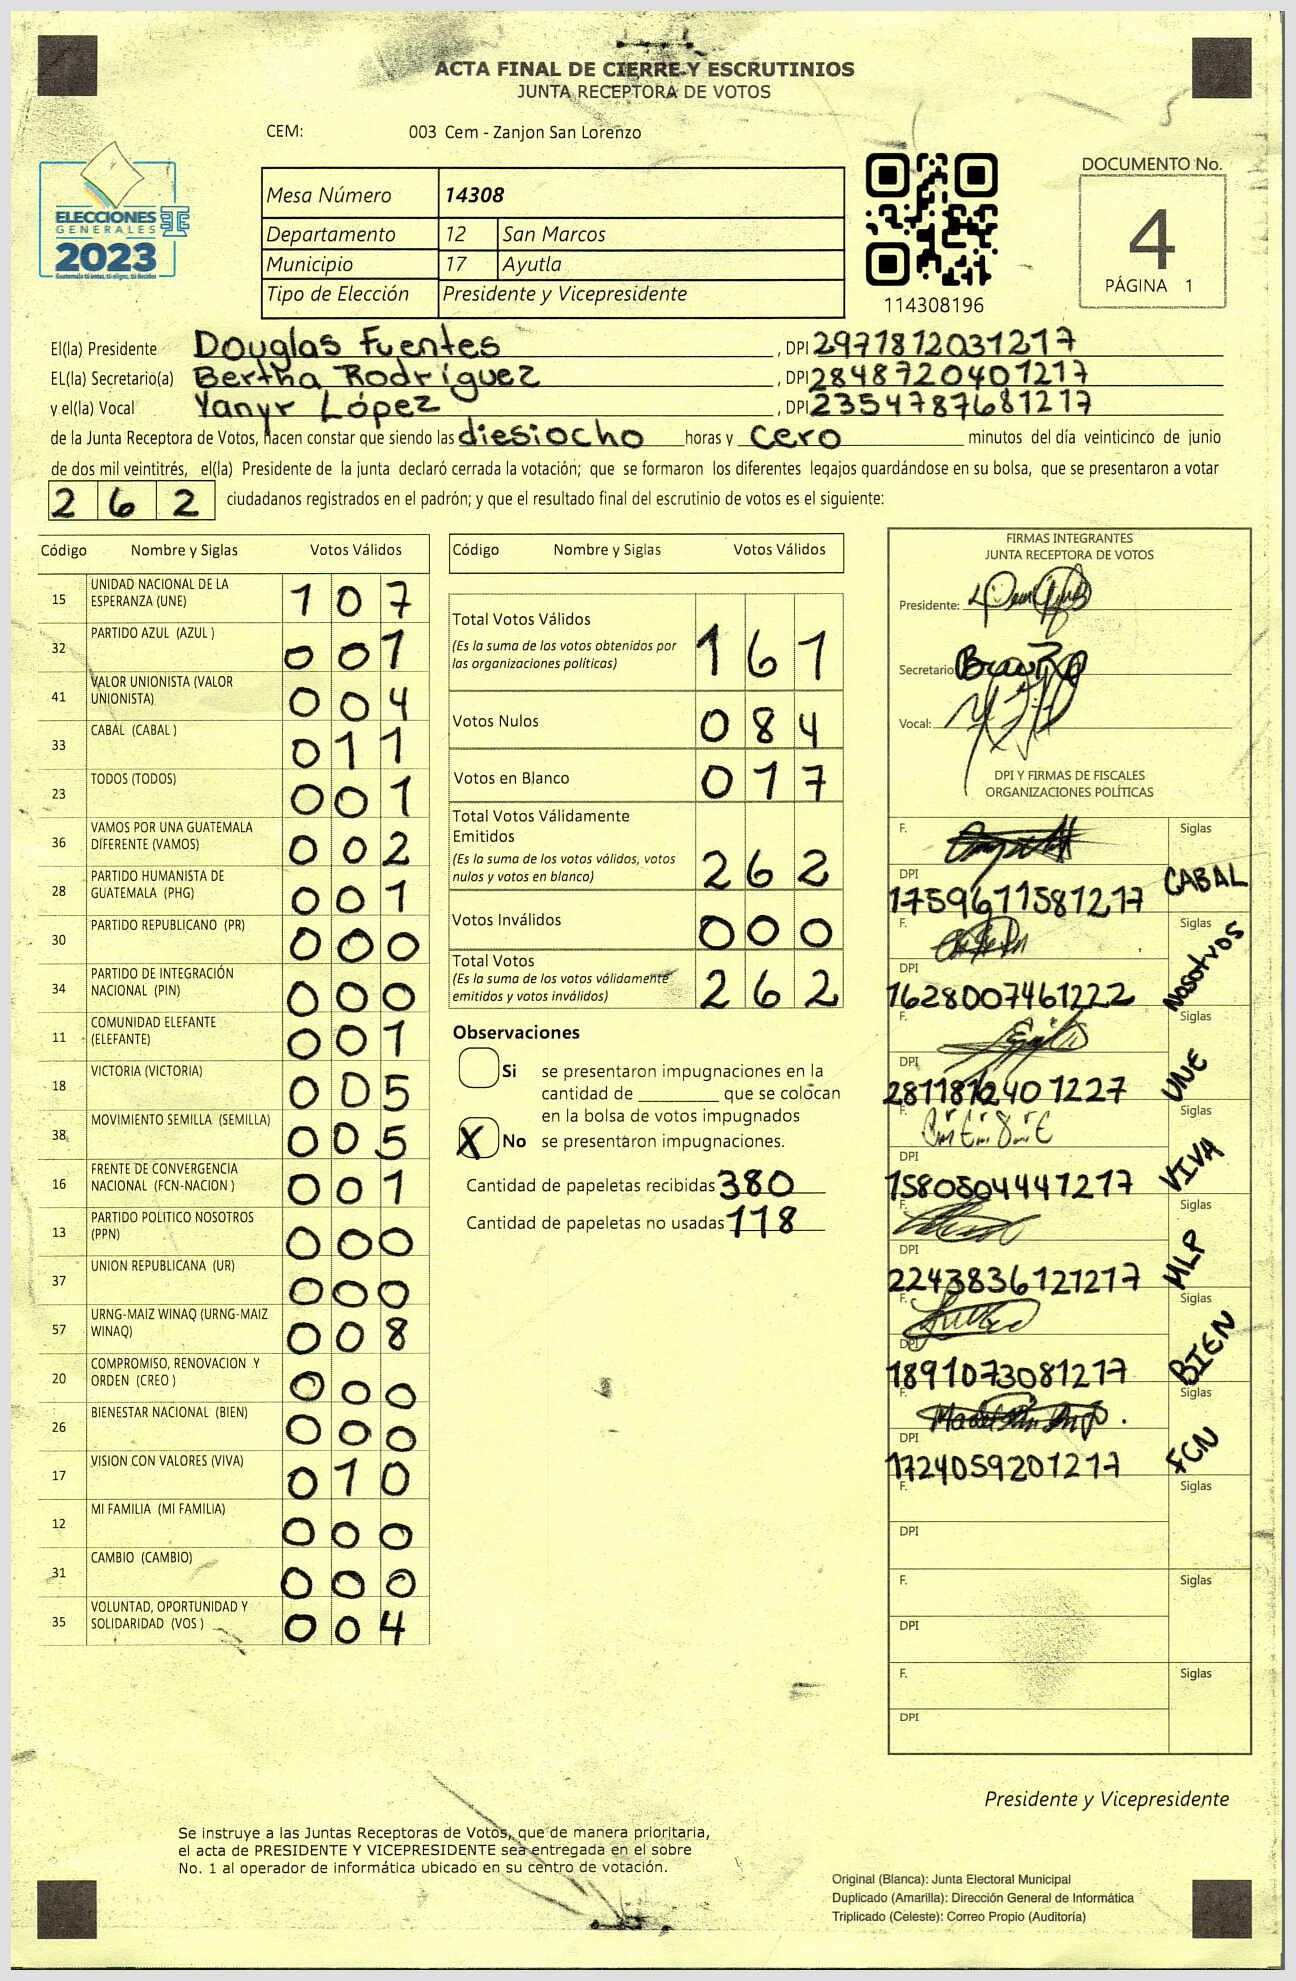 ACTA FINAL DE CIERRE Y ESCRUTINIOS
JUNTA RECEPTORA DE VOTOS
CEM: 003 Cem - Zanjon San Lorenzo
ELECCIONES
GENERALES
2023
Mesa Número 14308
Departamento 12 San Marcos
Municipio 17 Ayutla
Tipo de Elección Presidente y Vicepresidente
114308196
DOCUMENTO No.
4
PÁGINA 1
El(la) Presidente Douglas Fuentes , DPI 2971812031217
EL(la) Secretario(a) Bertha Rodríguez , DPI 2848720401217
y el(la) Vocal Yanyr López , DPI 2354787681217
de la Junta Receptora de Votos, hacen constar que siendo las diesiocho horas y cero minutos del día veinticinco de junio
de dos mil veintitrés, el(la) Presidente de la junta declaró cerrada la votación; que se formaron los diferentes legajos quardándose en su bolsa, que se presentaron a votar
262 ciudadanos registrados en el padrón; y que el resultado final del escrutinio de votos es el siguiente:
Código Nombre y Siglas Votos Válidos
15 UNIDAD NACIONAL DE LA ESPERANZA (UNE) 107
32 PARTIDO AZUL (AZUL ) 001
41 VALOR UNIONISTA (VALOR UNIONISTA) 004
33 CABAL (CABAL ) 011
23 TODOS (TODOS) 001
36 VAMOS POR UNA GUATEMALA DIFERENTE (VAMOS) 002
28 PARTIDO HUMANISTA DE GUATEMALA (PHG) 001
30 PARTIDO REPUBLICANO (PR) 000
34 PARTIDO DE INTEGRACIÓN NACIONAL (PIN) 000
11 COMUNIDAD ELEFANTE (ELEFANTE) 001
18 VICTORIA (VICTORIA) 005
38 MOVIMIENTO SEMILLA (SEMILLA) 005
16 FRENTE DE CONVERGENCIA NACIONAL (FCN-NACION ) 001
13 PARTIDO POLITICO NOSOTROS (PPN) 000
37 UNION REPUBLICANA (UR) 000
57 URNG-MAIZ WINAQ (URNG-MAIZ WINAQ) 008
20 COMPROMISO, RENOVACION Y ORDEN (CREO ) 000
26 BIENESTAR NACIONAL (BIEN) 000
17 VISION CON VALORES (VIVA) 010
12 MI FAMILIA (MI FAMILIA) 000
31 CAMBIO (CAMBIO) 000
35 VOLUNTAD, OPORTUNIDAD Y SOLIDARIDAD (VOS ) 004
Código Nombre y Siglas Votos Válidos
Total Votos Válidos 161
(Es la suma de los votos obtenidos por
las organizaciones políticas)
Votos Nulos 084
Votos en Blanco 017
Total Votos Válidamente
Emitidos 262
(Es la suma de los votos válidos, votos
nulos y votos en blanco)
Votos Inválidos 000
Total Votos 262
(Es la suma de los votos válidamente
emitidos y votos inválidos)
Observaciones
Si se presentaron impugnaciones en la
cantidad de que se colocan
en la bolsa de votos impugnados
X No se presentaron impugnaciones.
Cantidad de papeletas recibidas 380
Cantidad de papeletas no usadas 118
FIRMAS INTEGRANTES
JUNTA RECEPTORA DE VOTOS
Presidente:
Secretario
Vocal:
DPI Y FIRMAS DE FISCALES
ORGANIZACIONES POLÍTICAS
F. Siglas
DPI 1759671581217 CABAL
F. Siglas
DPI 1628007461222 NOSOTROS
F. Siglas
DPI UNE
F. Siglas
DPI 1580504441217 VIVA
F. Siglas
DPI 2243836121217 MLP
F. Siglas
DPI 1891073081217 BIEN
F. Siglas
DPI 1724059201217 FCN
F. Siglas
DPI
F. Siglas
DPI
F. Siglas
DPI
Presidente y Vicepresidente
Se instruye a las Juntas Receptoras de Votos, que de manera prioritaria,
el acta de PRESIDENTE Y VICEPRESIDENTE sea entregada en el sobre
No. 1 al operador de informática ubicado en su centro de votación.
Original (Blanca): Junta Electoral Municipal
Duplicado (Amarilla): Dirección General de Informática
Triplicado (Celeste): Correo Propio (Auditoría)